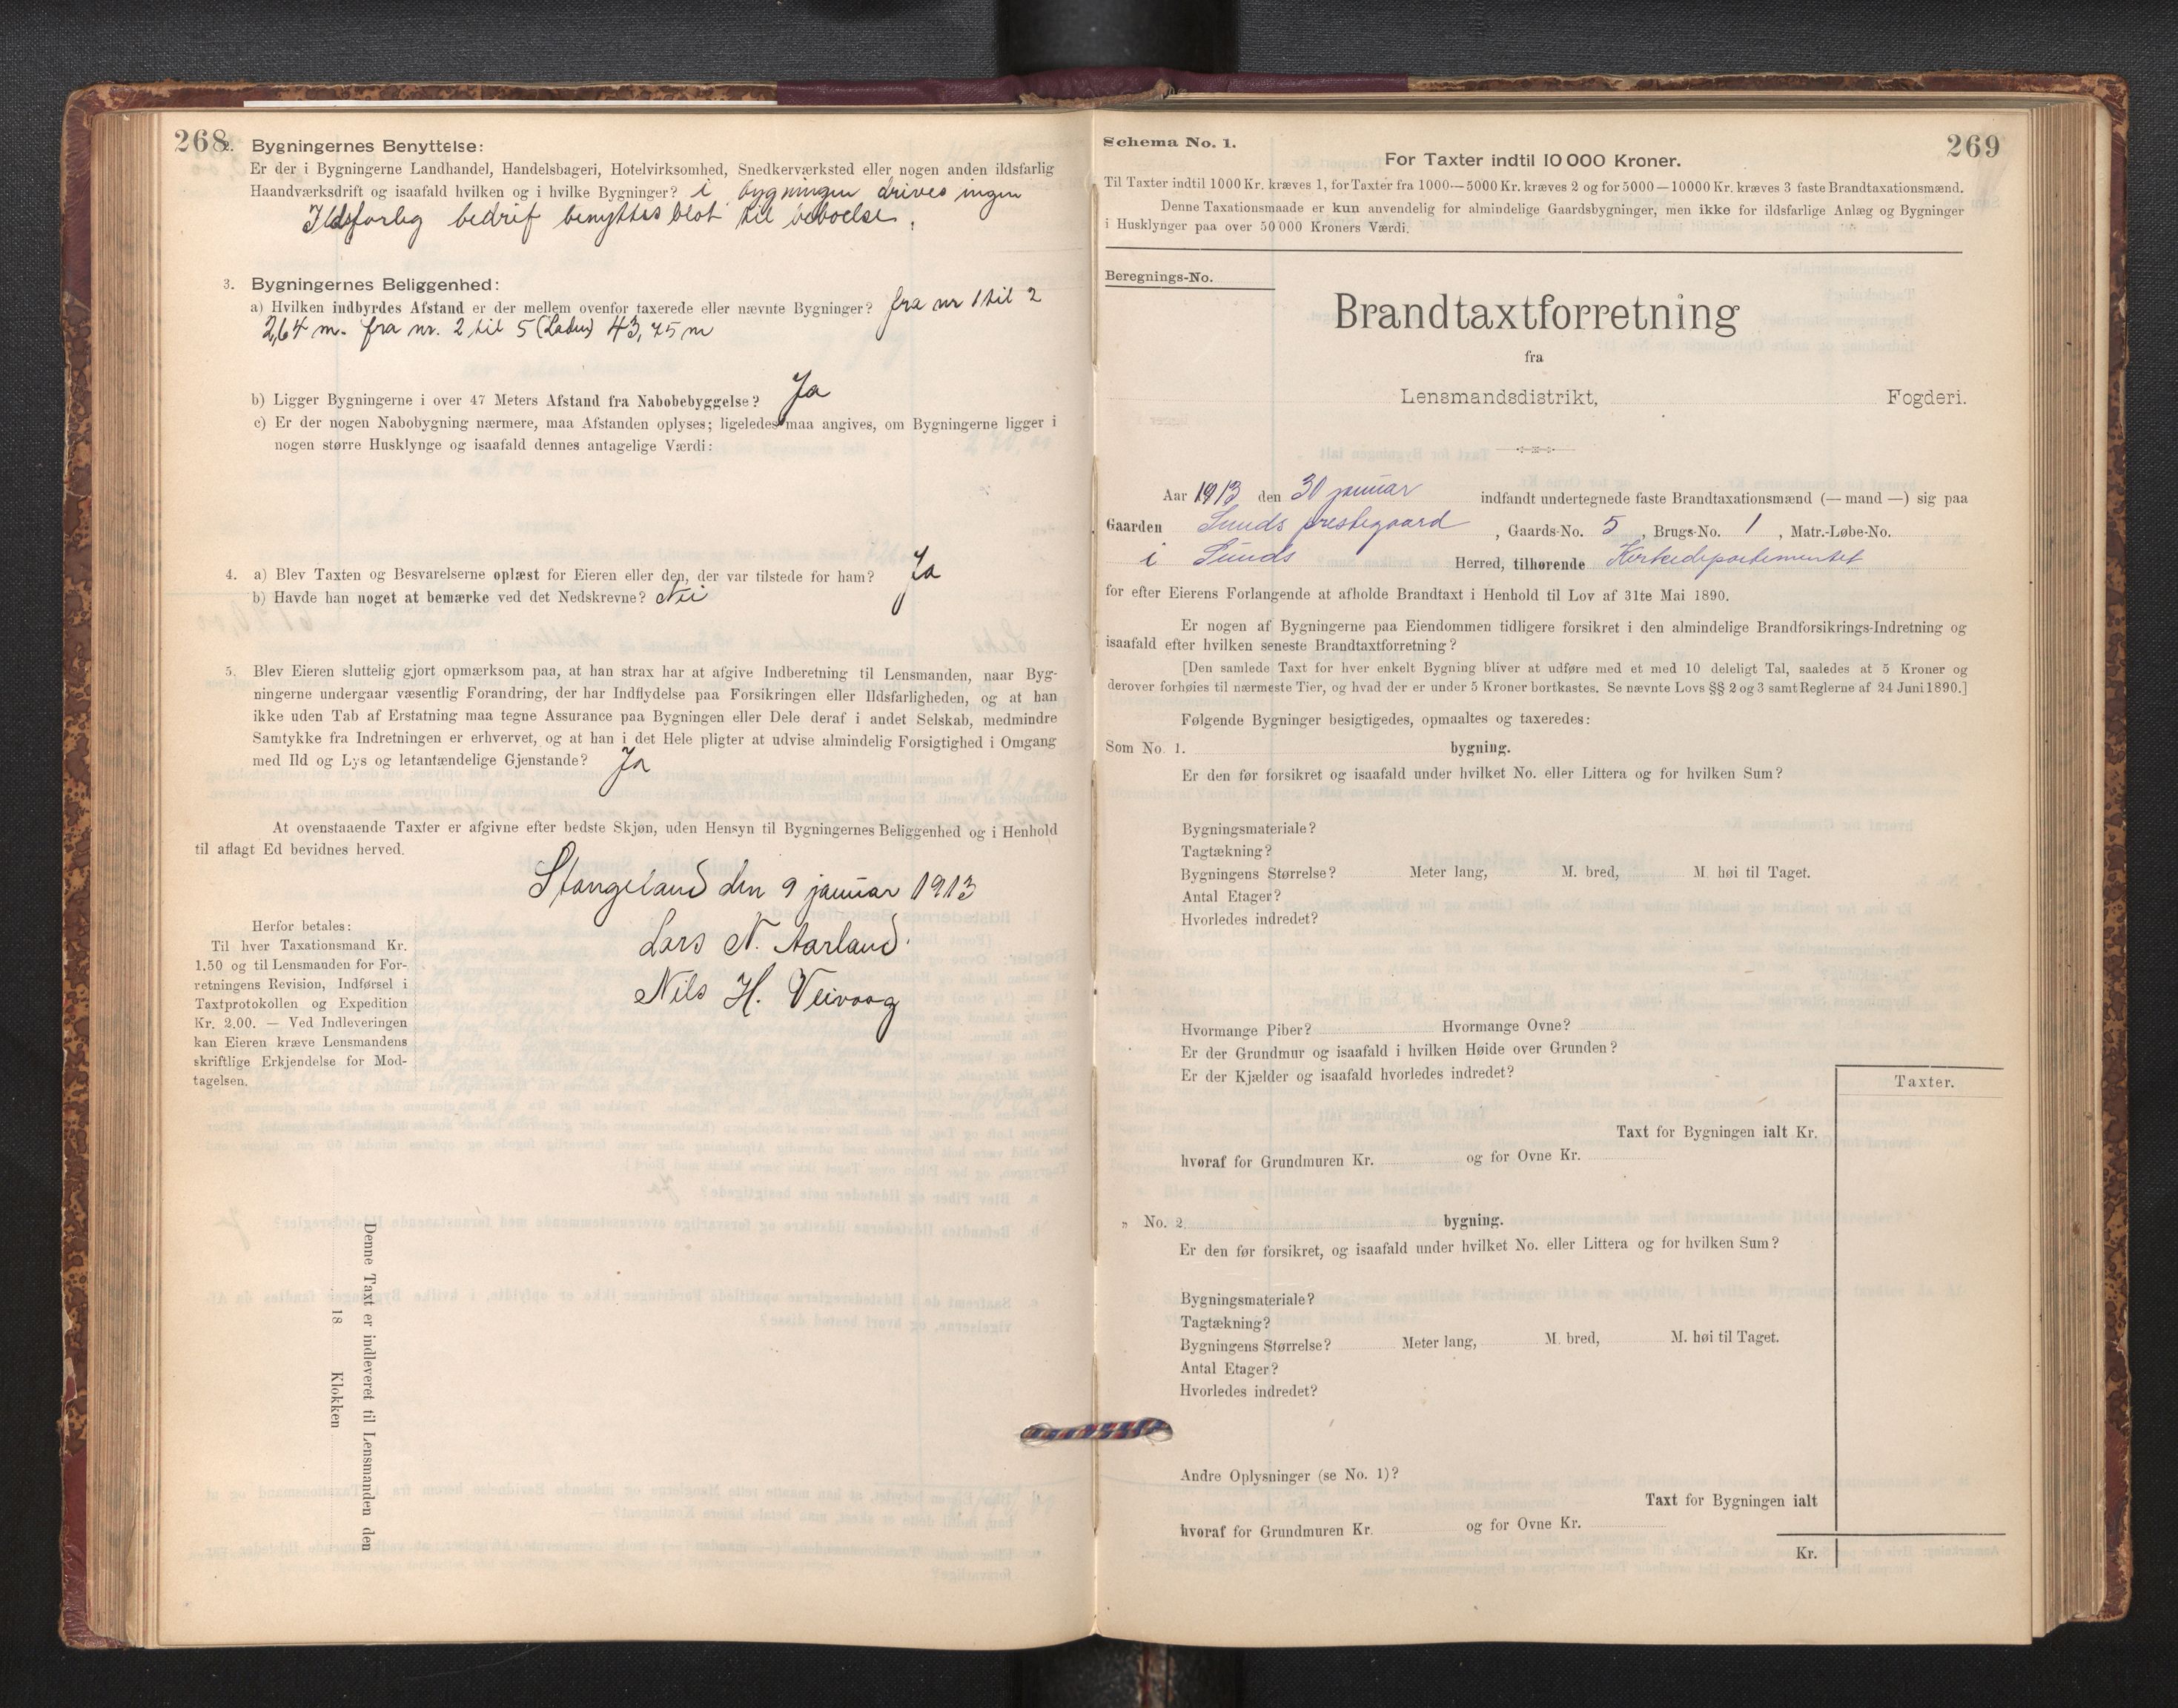 268
2. Bygningernes Benyttelse:
Er der i Bygningerne Landhandel, Handelsbageri, Hotelvirksomhed, Snedkerværksted eller nogen anden ildsfarlig
Haandværksdrift og isaafald hvilken og i hvilke Bygninger? i bygningen drives ingen
Ildsfarlig bedrif benyttes blot til beboelse.
3. Bygningernes Beliggenhed:
a) Hvilken indbyrdes Afstand er der mellem ovenfor taxerede eller nævnte Bygninger? fra nr 1 til 2
2,64 m. fra nr. 2 til 5 (Laden) 43,75 m
b) Ligger Bygningerne i over 47 Meters Afstand fra Nabobebyggelse? Ja
c) Er der nogen Nabobygning nærmere, maa Afstanden oplyses; ligeledes maa angives, om Bygningerne ligger i
nogen større Husklynge og isaafald dennes antagelige Værdi:
4. a) Blev Taxten og Besvarelserne oplæst for Eieren eller den, der var tilstede for ham? Ja
b) Havde han noget at bemærke ved det Nedskrevne? Nei
5. Blev Eieren sluttelig gjort opmærksom paa, at han strax har at afgive Indberetning til Lensmanden, naar Byg-
ningerne undergaar væsentlig Forandring, der har Indflydelse paa Forsikringen eller Ildsfarligheden, og at han
ikke uden Tab af Erstatning maa tegne Assurance paa Bygningen eller Dele deraf i andet Selskab, medmindre
Samtykke fra Indretningen er erhvervet, og at han i det Hele pligter at udvise almindelig Forsigtighed i Omgang
med Ild og Lys og letantændelige Gjenstande? Ja
At ovenstaaende Taxter er afgivne efter bedste Skjøn, uden Hensyn til Bygningernes Beliggenhed og i Henhold
til aflagt Ed bevidnes herved.
Stangeland den 9 januar 1913
Lars N. Aarland
Nils H. Veivaag
Herfor betales:
Til hver Taxationsmand Kr.
1.50 og til Lensmanden for For-
retningens Revision, Indførsel i
Taxtprotokollen og Expedition
Kr. 2.00. — Ved Indleveringen
kan Eieren kræve Lensmandens
skriftlige Erkjendelse for Mod-
tagelsen.
Denne Taxt er indleveret til Lensmanden den
18 Klokken
Schema No. 1.
269
For Taxter indtil 10 000 Kroner.
Til Taxter indtil 1000 Kr. kræves 1, for Taxter fra 1000—5000 Kr. kræves 2 og for 5000—10000 Kr. kræves 3 faste Brandtaxationsmænd.
Denne Taxationsmaade er kun anvendelig for almindelige Gaardsbygninger, men ikke for ildsfarlige Anlæg og Bygninger
i Husklynger paa over 50 000 Kroners Værdi.
Beregnings-No.
Brandtaxtforretning
fra
Lensmandsdistrikt, Fogderi.
Aar 1913 den 30 januar indfandt undertegnede faste Brandtaxationsmænd (— mand —) sig paa
Gaarden Sunds prestegaard, Gaards-No. 5, Brugs-No. 1, Matr.-Løbe-No.
i Sunds Herred, tilhørende Kirkedepartementet
for efter Eierens Forlangende at afholde Brandtaxt i Henhold til Lov af 31te Mai 1890.
Er nogen af Bygningerne paa Eiendommen tidligere forsikret i den almindelige Brandforsikrings-Indretning og
isaafald efter hvilken seneste Brandtaxtforretning?
[Den samlede Taxt for hver enkelt Bygning bliver at udføre med et med 10 deleligt Tal, saaledes at 5 Kroner og
derover forhøies til nærmeste Tier, og hvad der er under 5 Kroner bortkastes. Se nævnte Lovs §§ 2 og 3 samt Reglerne af 24 Juni 1890.]
Følgende Bygninger besigtigedes, opmaaltes og taxeredes:
Som No. 1. bygning.
Er den før forsikret og isaafald under hvilket No. eller Littera og for hvilken Sum?
Bygningsmateriale?
Tagtækning?
Bygningens Størrelse? Meter lang, M. bred, M. høi til Taget.
Antal Etager?
Hvorledes indredet?
Hvormange Piber? Hvormange Ovne?
Er der Grundmur og isaafald i hvilken Høide over Grunden?
Er der Kjælder og isaafald hvorledes indredet?
Taxter.
Taxt for Bygningen ialt Kr.
hvoraf for Grundmuren Kr. og for Ovne Kr.
„ No. 2. bygning.
Er den før forsikret, og isaafald under hvilket No. eller Littera og for hvilken Sum?
Bygningsmateriale?
Tagtækning?
Bygningens Størrelse? Meter lang, M. bred, M. høi til Taget.
Antal Etager?
Hvorledes indredet?
Andre Oplysninger (se No. 1)?
Taxt for Bygningen ialt
hvoraf for Grundmuren Kr. og for Ovne Kr.
Kr.